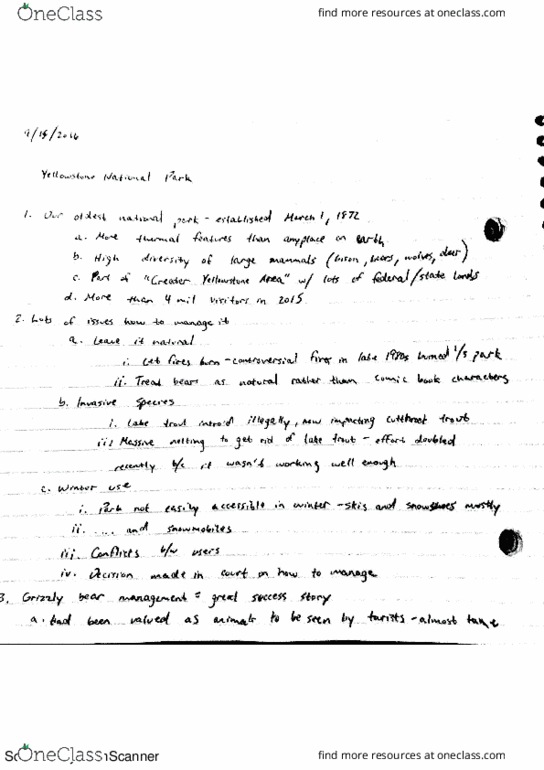 OneClass find more resources at oneclass.com
9/15/2016
Yellowstone National Park
1. Our oldest national park - established March 1, 1872
a. More thermal features than anyplace on earth
b. High diversity of large mammals (bison, bears, wolves, deer)
c. Part of "Greater Yellowstone Area" w/ lots of federal/state lands
d. More than 4 mil visitors in 2015
2. Lots of issues how to manage it
a. Leave it natural
i. Let fires burn - controversial fires in late 1980s burned 1/3 park
ii. Treat bears as natural rather than comic book characters
b. Invasive species
i. Lake trout introd illegally, now impacting cutthroat trout
ii) Massive netting to get rid of lake trout - effort doubled
recently b/c it wasn't working well enough
c. Winter use
i. Park not easily accessible in winter - skis and snowshoes mostly
ii. .... and snowmobiles
iii. Conflicts b/w users
iv. Decision made in court on how to manage
3. Grizzly bear management = great success story
a. Had been valued as animals to be seen by tourists - almost tame
OneClass Scanner find more resources at oneclass.com